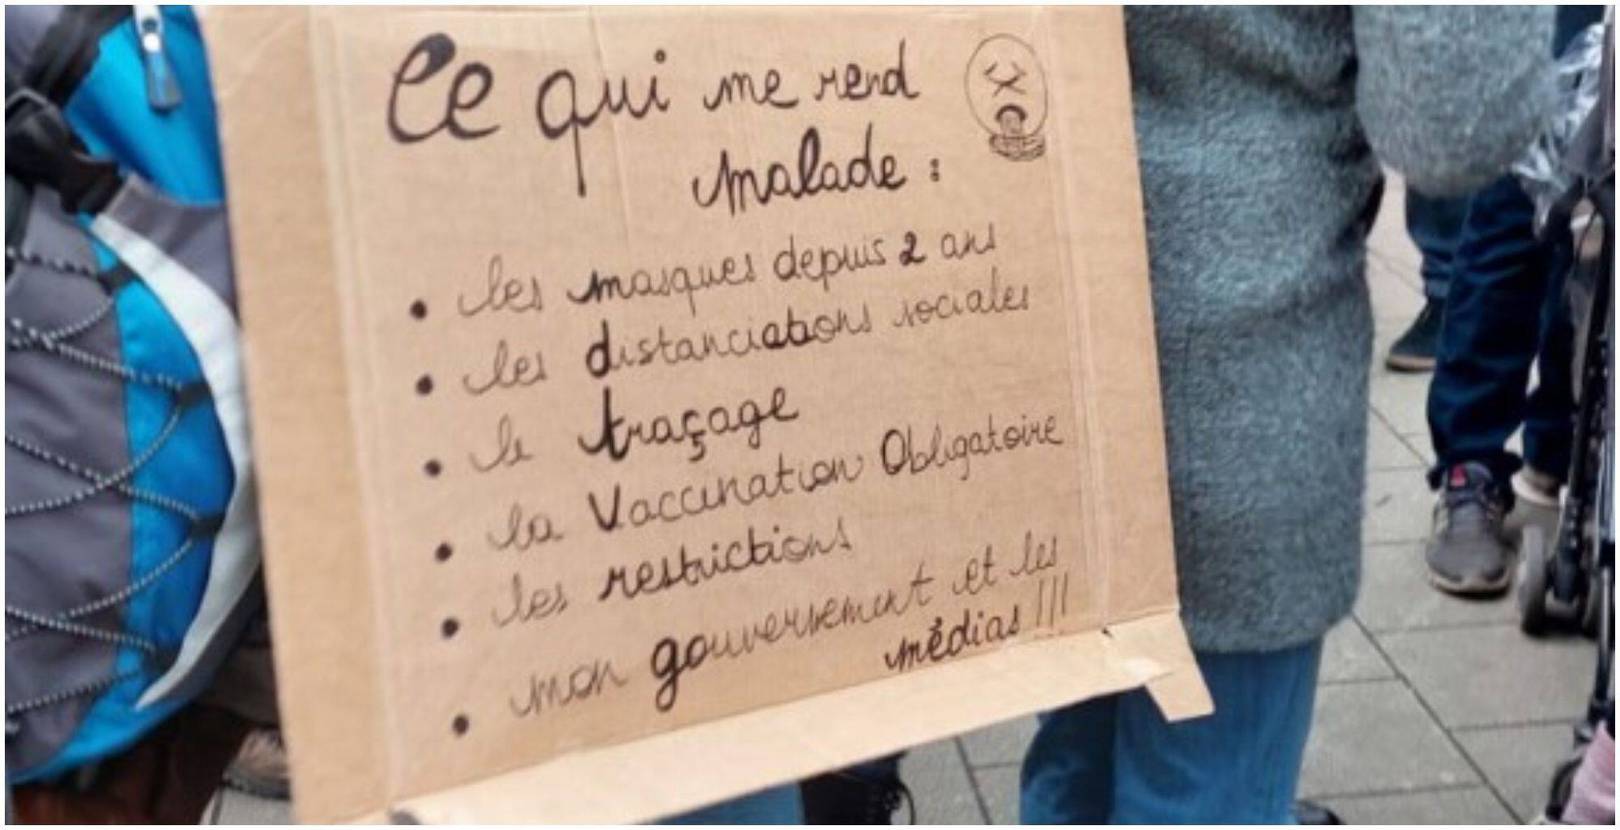 Ce qui me rend
malade :
• les masques depuis 2 ans
• les distanciations sociales
• le traçage
• la Vaccination Obligatoire
• les restrictions
• mon gouvernement et les
médias !!!